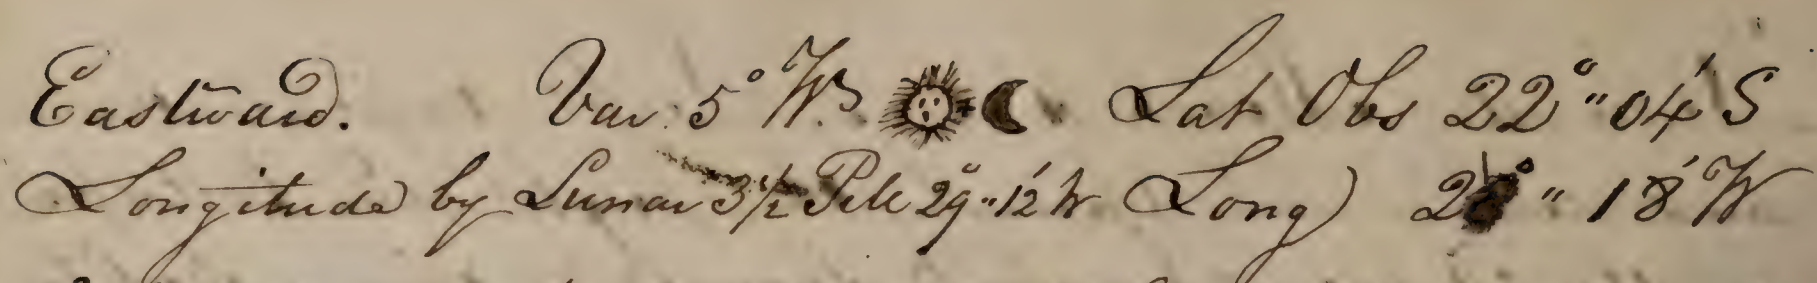 Eastward. Var. 5° W. Lat Obs 22°" 04' S
Longitude by Lunar 3 1/2 29°" 12' W Long) 18' W